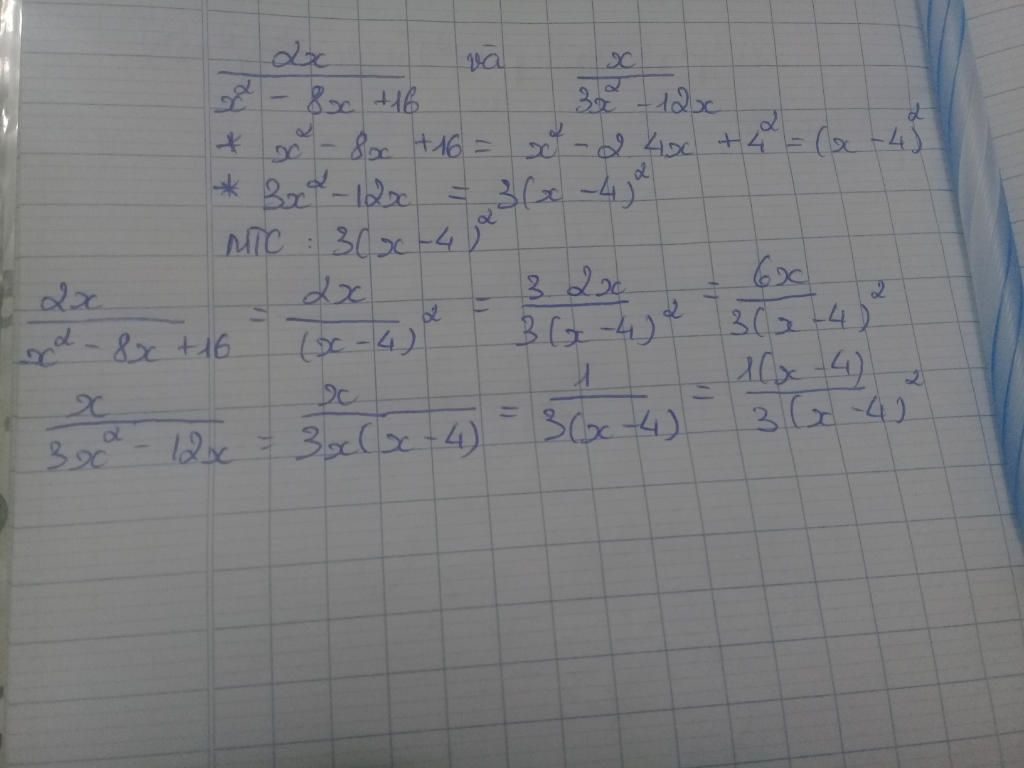 2x/(x² - 8x + 16) và x/(3x² - 12x)
* x² - 8x + 16 = x² - 2 4x + 4² = (x - 4)²
* 3x² - 12x = 3(x - 4)²
MTC : 3(x - 4)²
2x/(x² - 8x + 16) = 2x/(x - 4)² = 3 2x/3(x - 4)² = 6x/3(x - 4)²
x/(3x² - 12x) = x/3x(x - 4) = 1/3(x - 4) = 1(x - 4)/3(x - 4)²